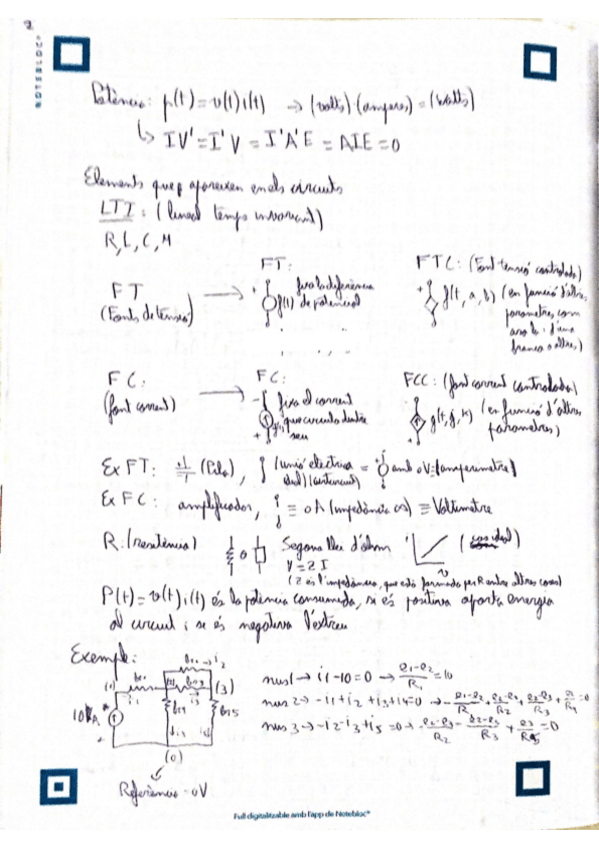 2
NOTEBLOC®
Potència: p(t) = v(t) i(t) → (volts)·(ampers) = (watts)
↳ IV' = I'V = I'A'E = AIE = 0
Elements que apareixen en els circuits
LTI: (lineal temps invariant)
R, L, C, M
FT
(Fonts de tensió)
→
FT:
fixa la diferència
f(t) de potencial
FTC: (Font tensió controlada)
f(t, a, b) (en funció d'altres
paràmetres, com
ara la i d'una
branca o altres)
FC:
(font corrent)
→
FC:
fixa el corrent
que circula dintre
seu
FCC: (font corrent controlada)
g(t, j, k) (en funció d'altres
paràmetres)
Ex FT: (Pila), (unió elèctrica = amb 0V = (amperímetre)
ideal)
Ex FC: amplificador, ≡ 0A (impedància ∞) ≡ Voltímetre
R: (resistència) o Segona llei d'ohm
V = Z I
(Z és l'impedància, que està formada per R entre altres coses)
P(t) = v(t) i(t) és la potència consumida, si és positiva aporta energia
al circuit i si és negativa l'extreu
Exemple:
(1) (3)
(0)
Referència - 0V
nus 1 → i1 - 10 = 0 → e1-e2/R1 = 10
nus 2 → -i1 + i2 + i3 + i4 = 0
nus 3 → -i2 - i3 + i5 = 0
Full digitalitzable amb l'app de Notebloc®